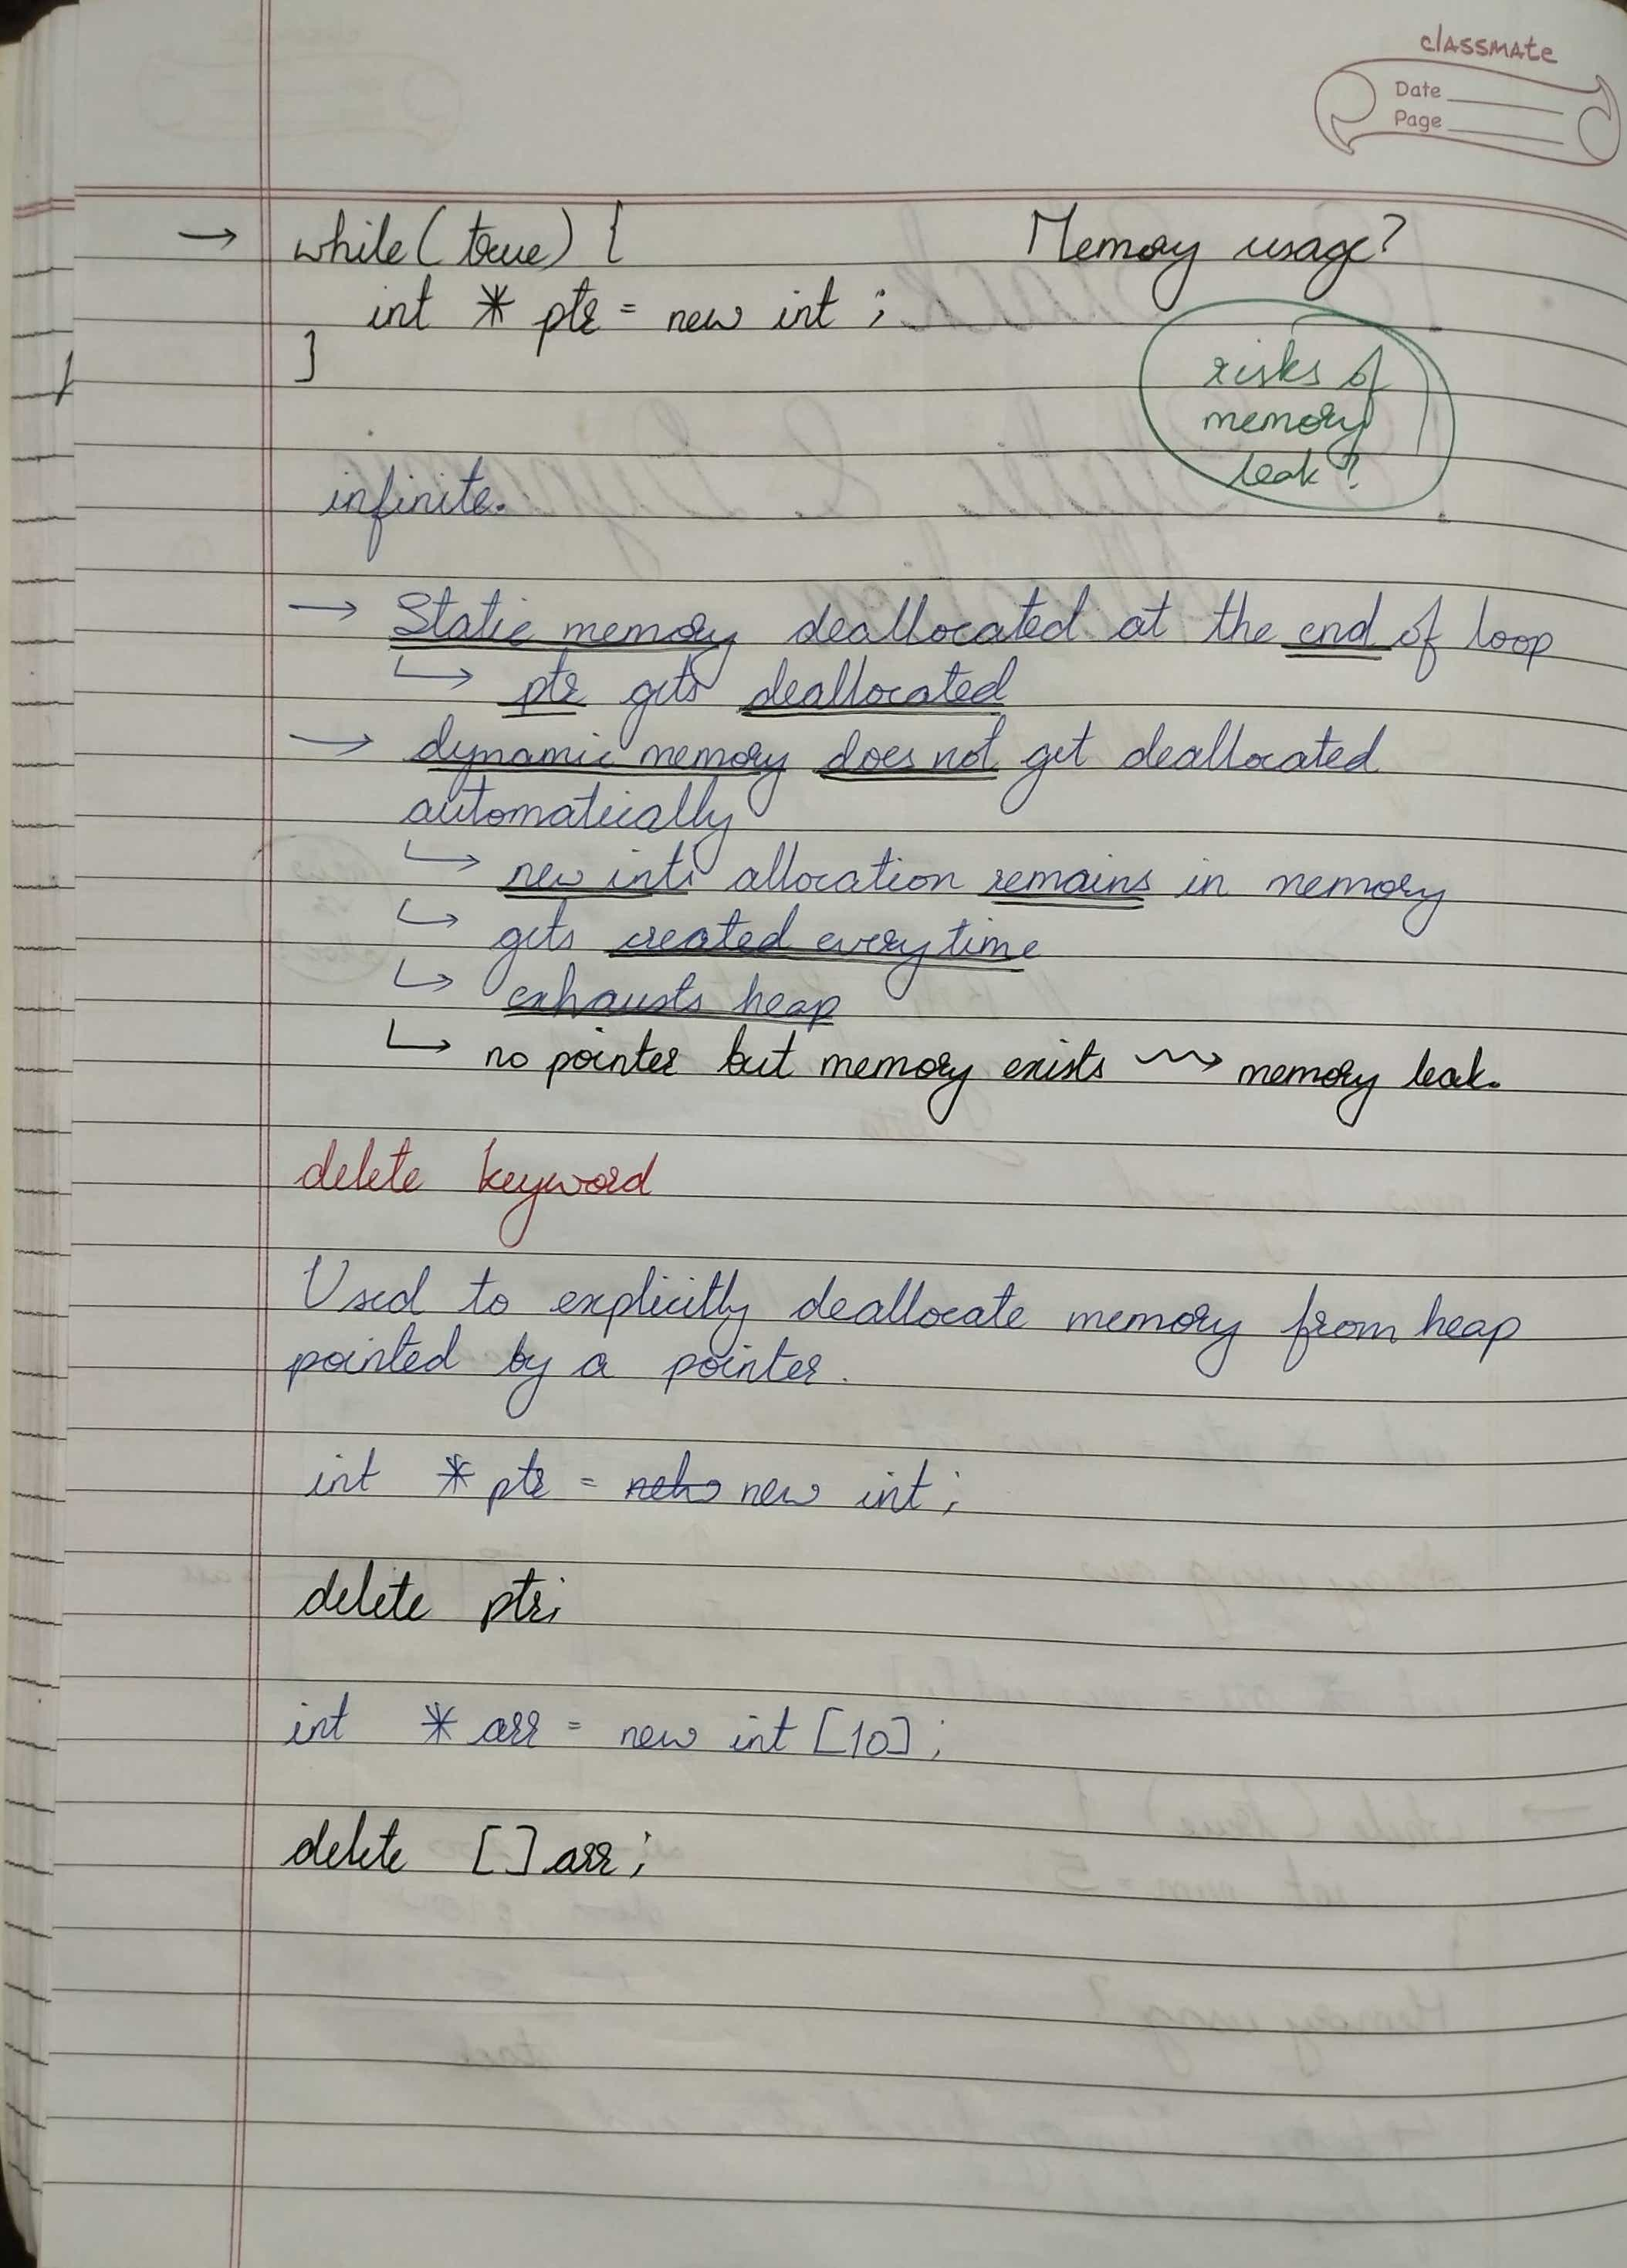 classmate
Date
Page
→ while(true) { Memory usage?
int * ptr = new int ;
}
risks of
memory
leak?
infinite.
→ Static memory deallocated at the end of loop
↳ ptr gets deallocated
→ dynamic memory does not get deallocated
automatically
↳ new ints allocation remains in memory
↳ gets created everytime
↳ exhausts heap
↳ no pointer but memory exists ⇝ memory leak.
delete keyword
Used to explicitly deallocate memory from heap
pointed by a pointer.
int * ptr = new int;
delete ptr;
int * arr = new int [10];
delete [] arr;